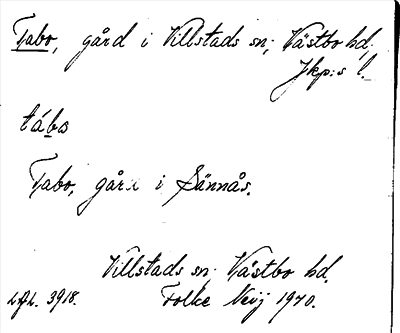 Tabo, gård i Villstads sn; Västbo hd,
Jkp:s l.
tábo
Tabo, gård i Sännås.
Villstads sn; Västbo hd.
LAL. 3918. Folke Neij 1940.